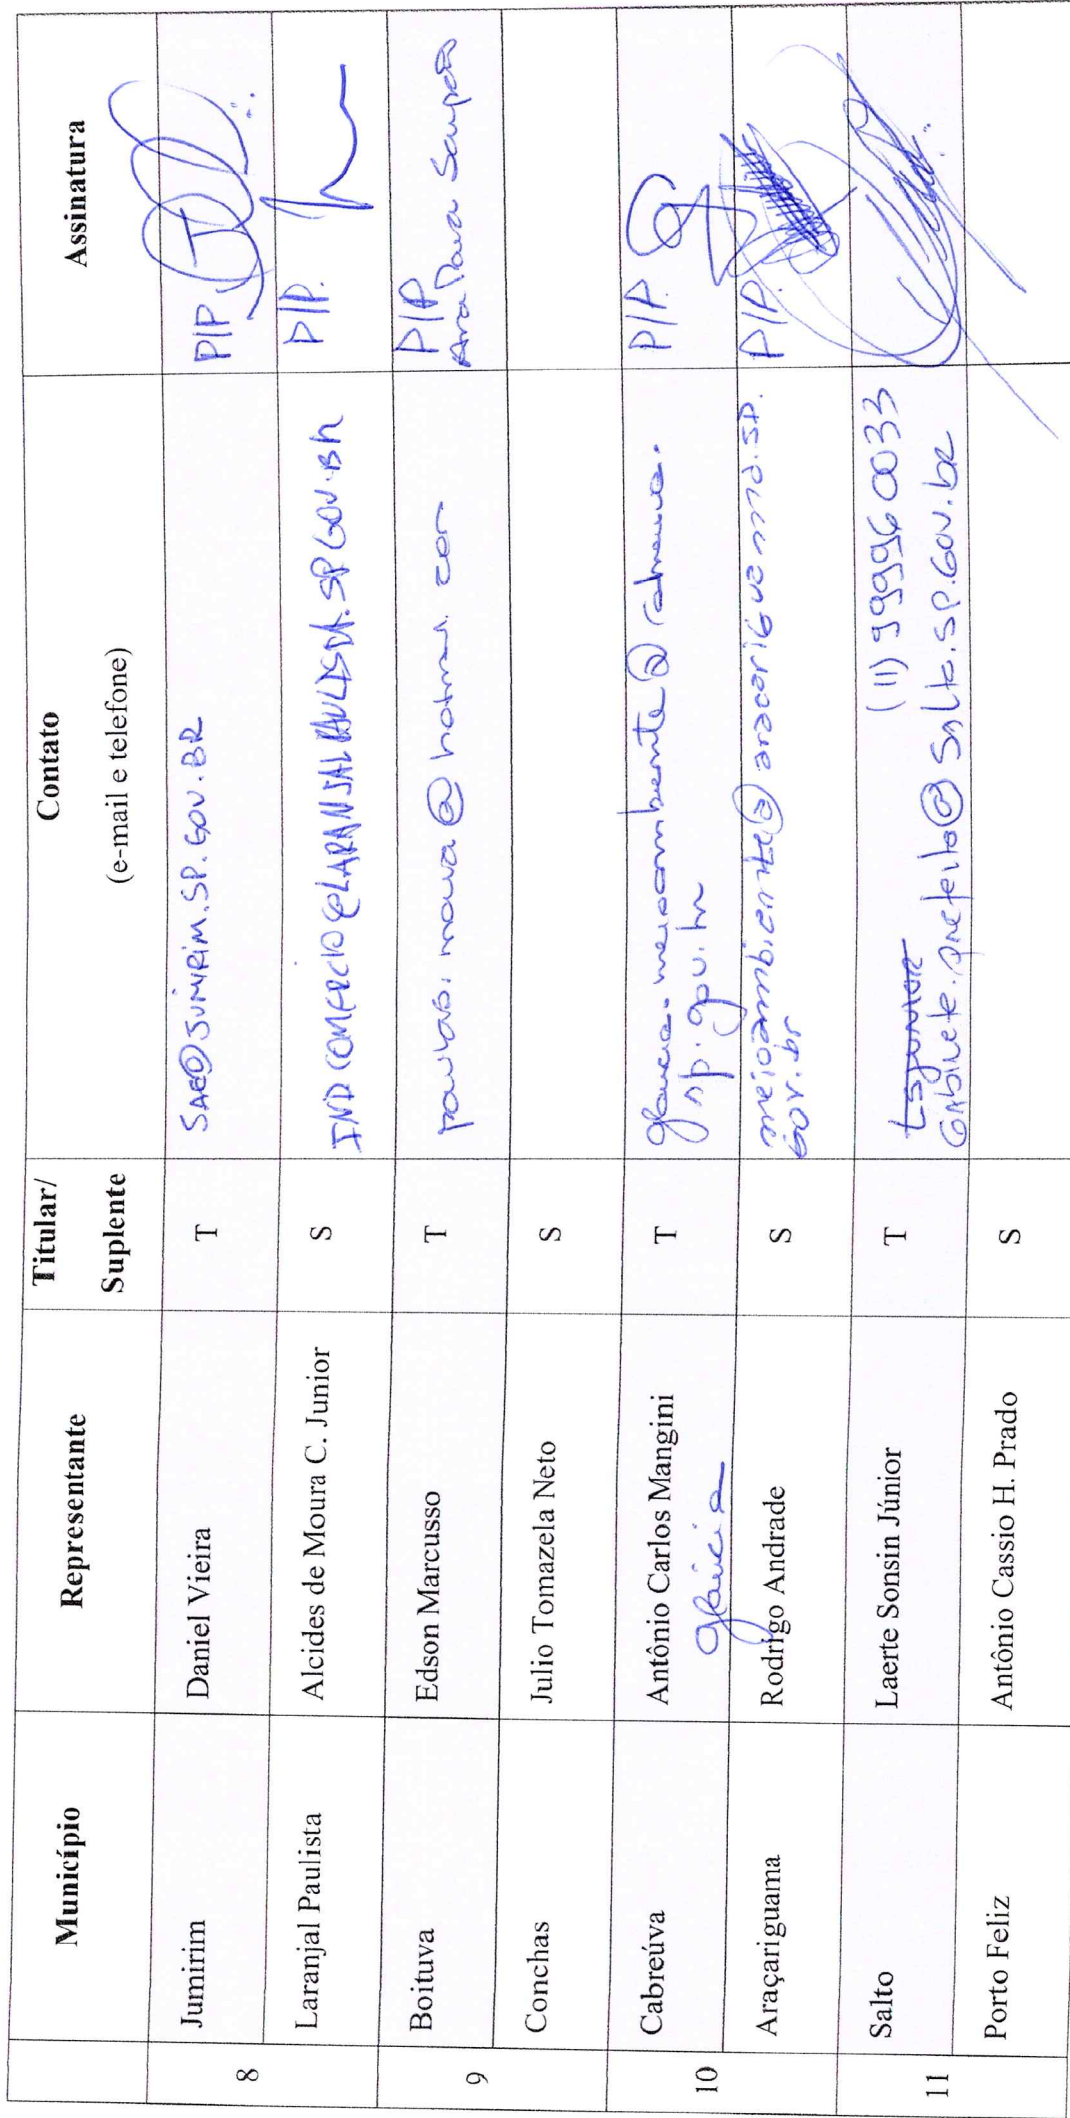 Município Representante Titular/ Suplente Contato (e-mail e telefone) Assinatura
8 Jumirim Daniel Vieira T SAE@JUMIRIM.SP.GOV.BR P/P
Laranjal Paulista Alcides de Moura C. Junior S INDCOMERCIO@LARANJALPAULISTA.SP.GOV.BR P/P.
9 Boituva Edson Marcusso T @hotmail.com P/P
Ana Paula Sampaio
Conchas Julio Tomazela Neto S
10 Cabreúva Antônio Carlos Mangini T glaucia.meioambiente@cabreuva. P/P.
Glaucia sp.gov.br
Araçariguama Rodrigo Andrade S meioambiente@aracariguama.sp. P/P.
gov.br
11 Salto Laerte Sonsin Júnior T (11) 99996 0033
Gabinete.prefeito@Salto.SP.Gov.br
Porto Feliz Antônio Cassio H. Prado S